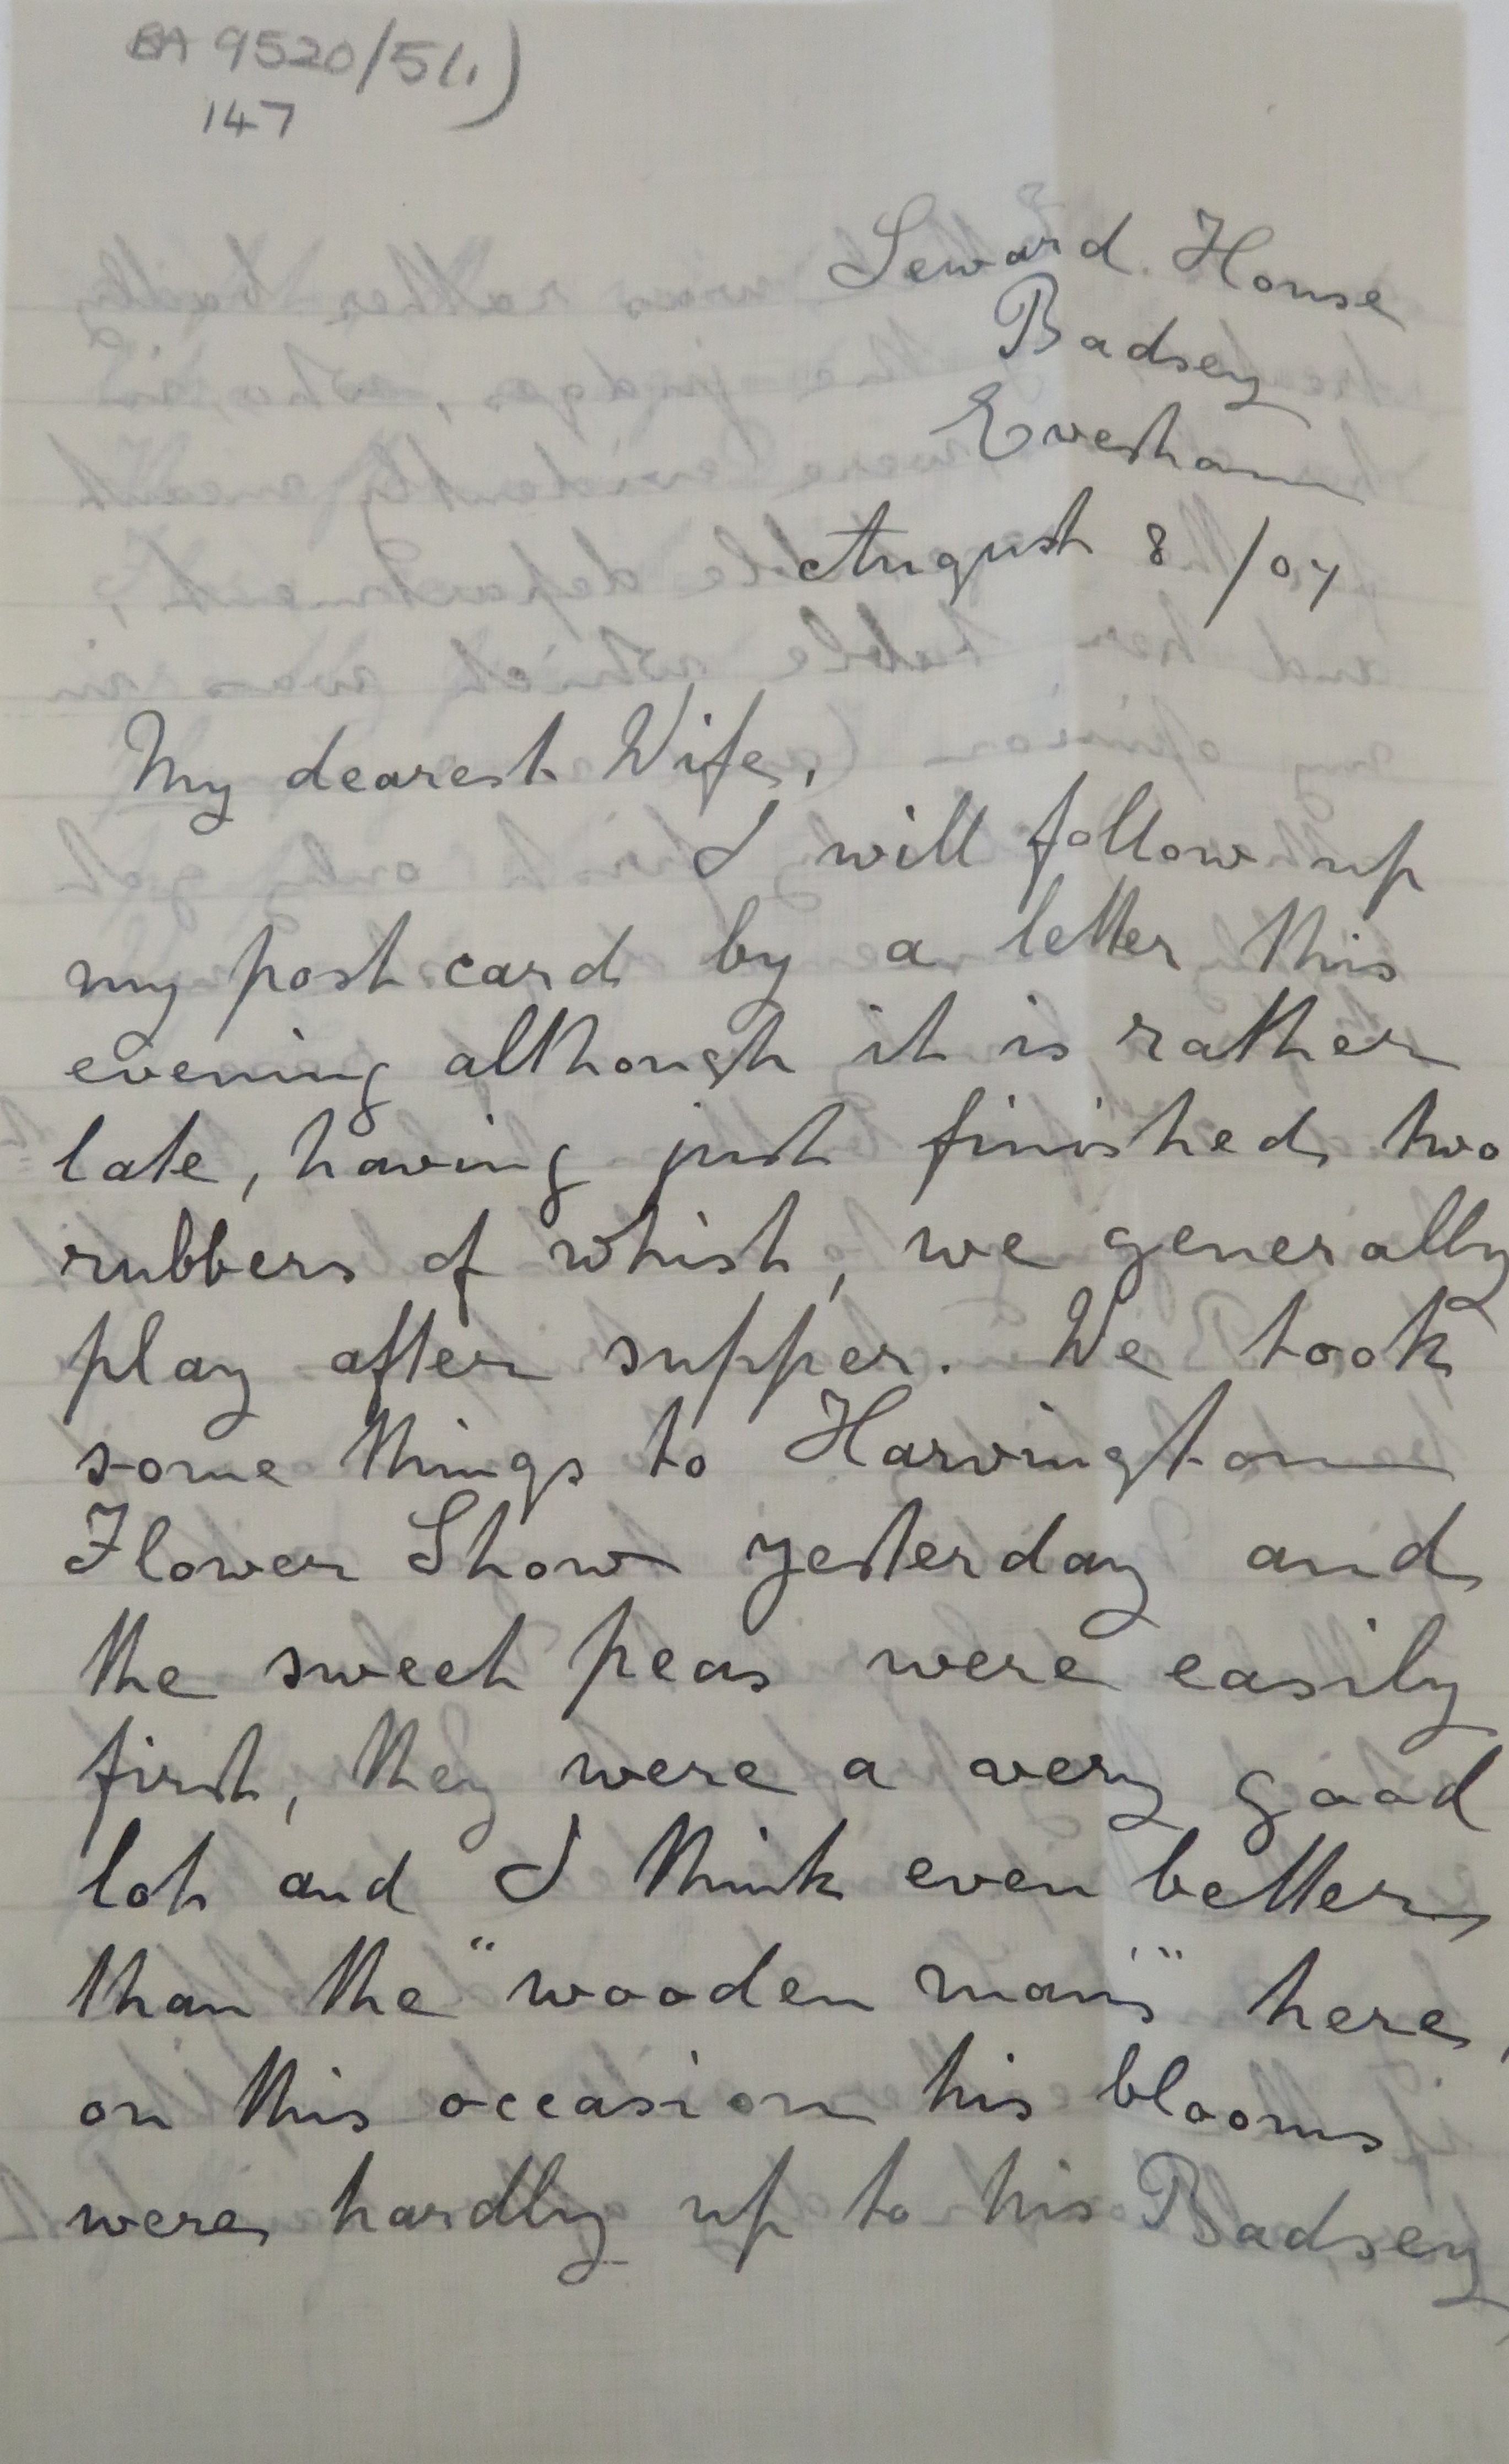 BA 9520/5(1)
147
Seward House
Badsey
Evesham
August 8 /07
My dearest Wife,
I will follow up
my post card by a letter this
evening although it is rather
late, having just finished two
rubbers of whist, we generally
play after supper. We took
some things to Harvington
Flower Show yesterday and
the sweet peas were easily
first, they were a very good
lot and I think even better
than the "wooden man's" here,
on this occasion his blooms
were hardly up to his Badsey